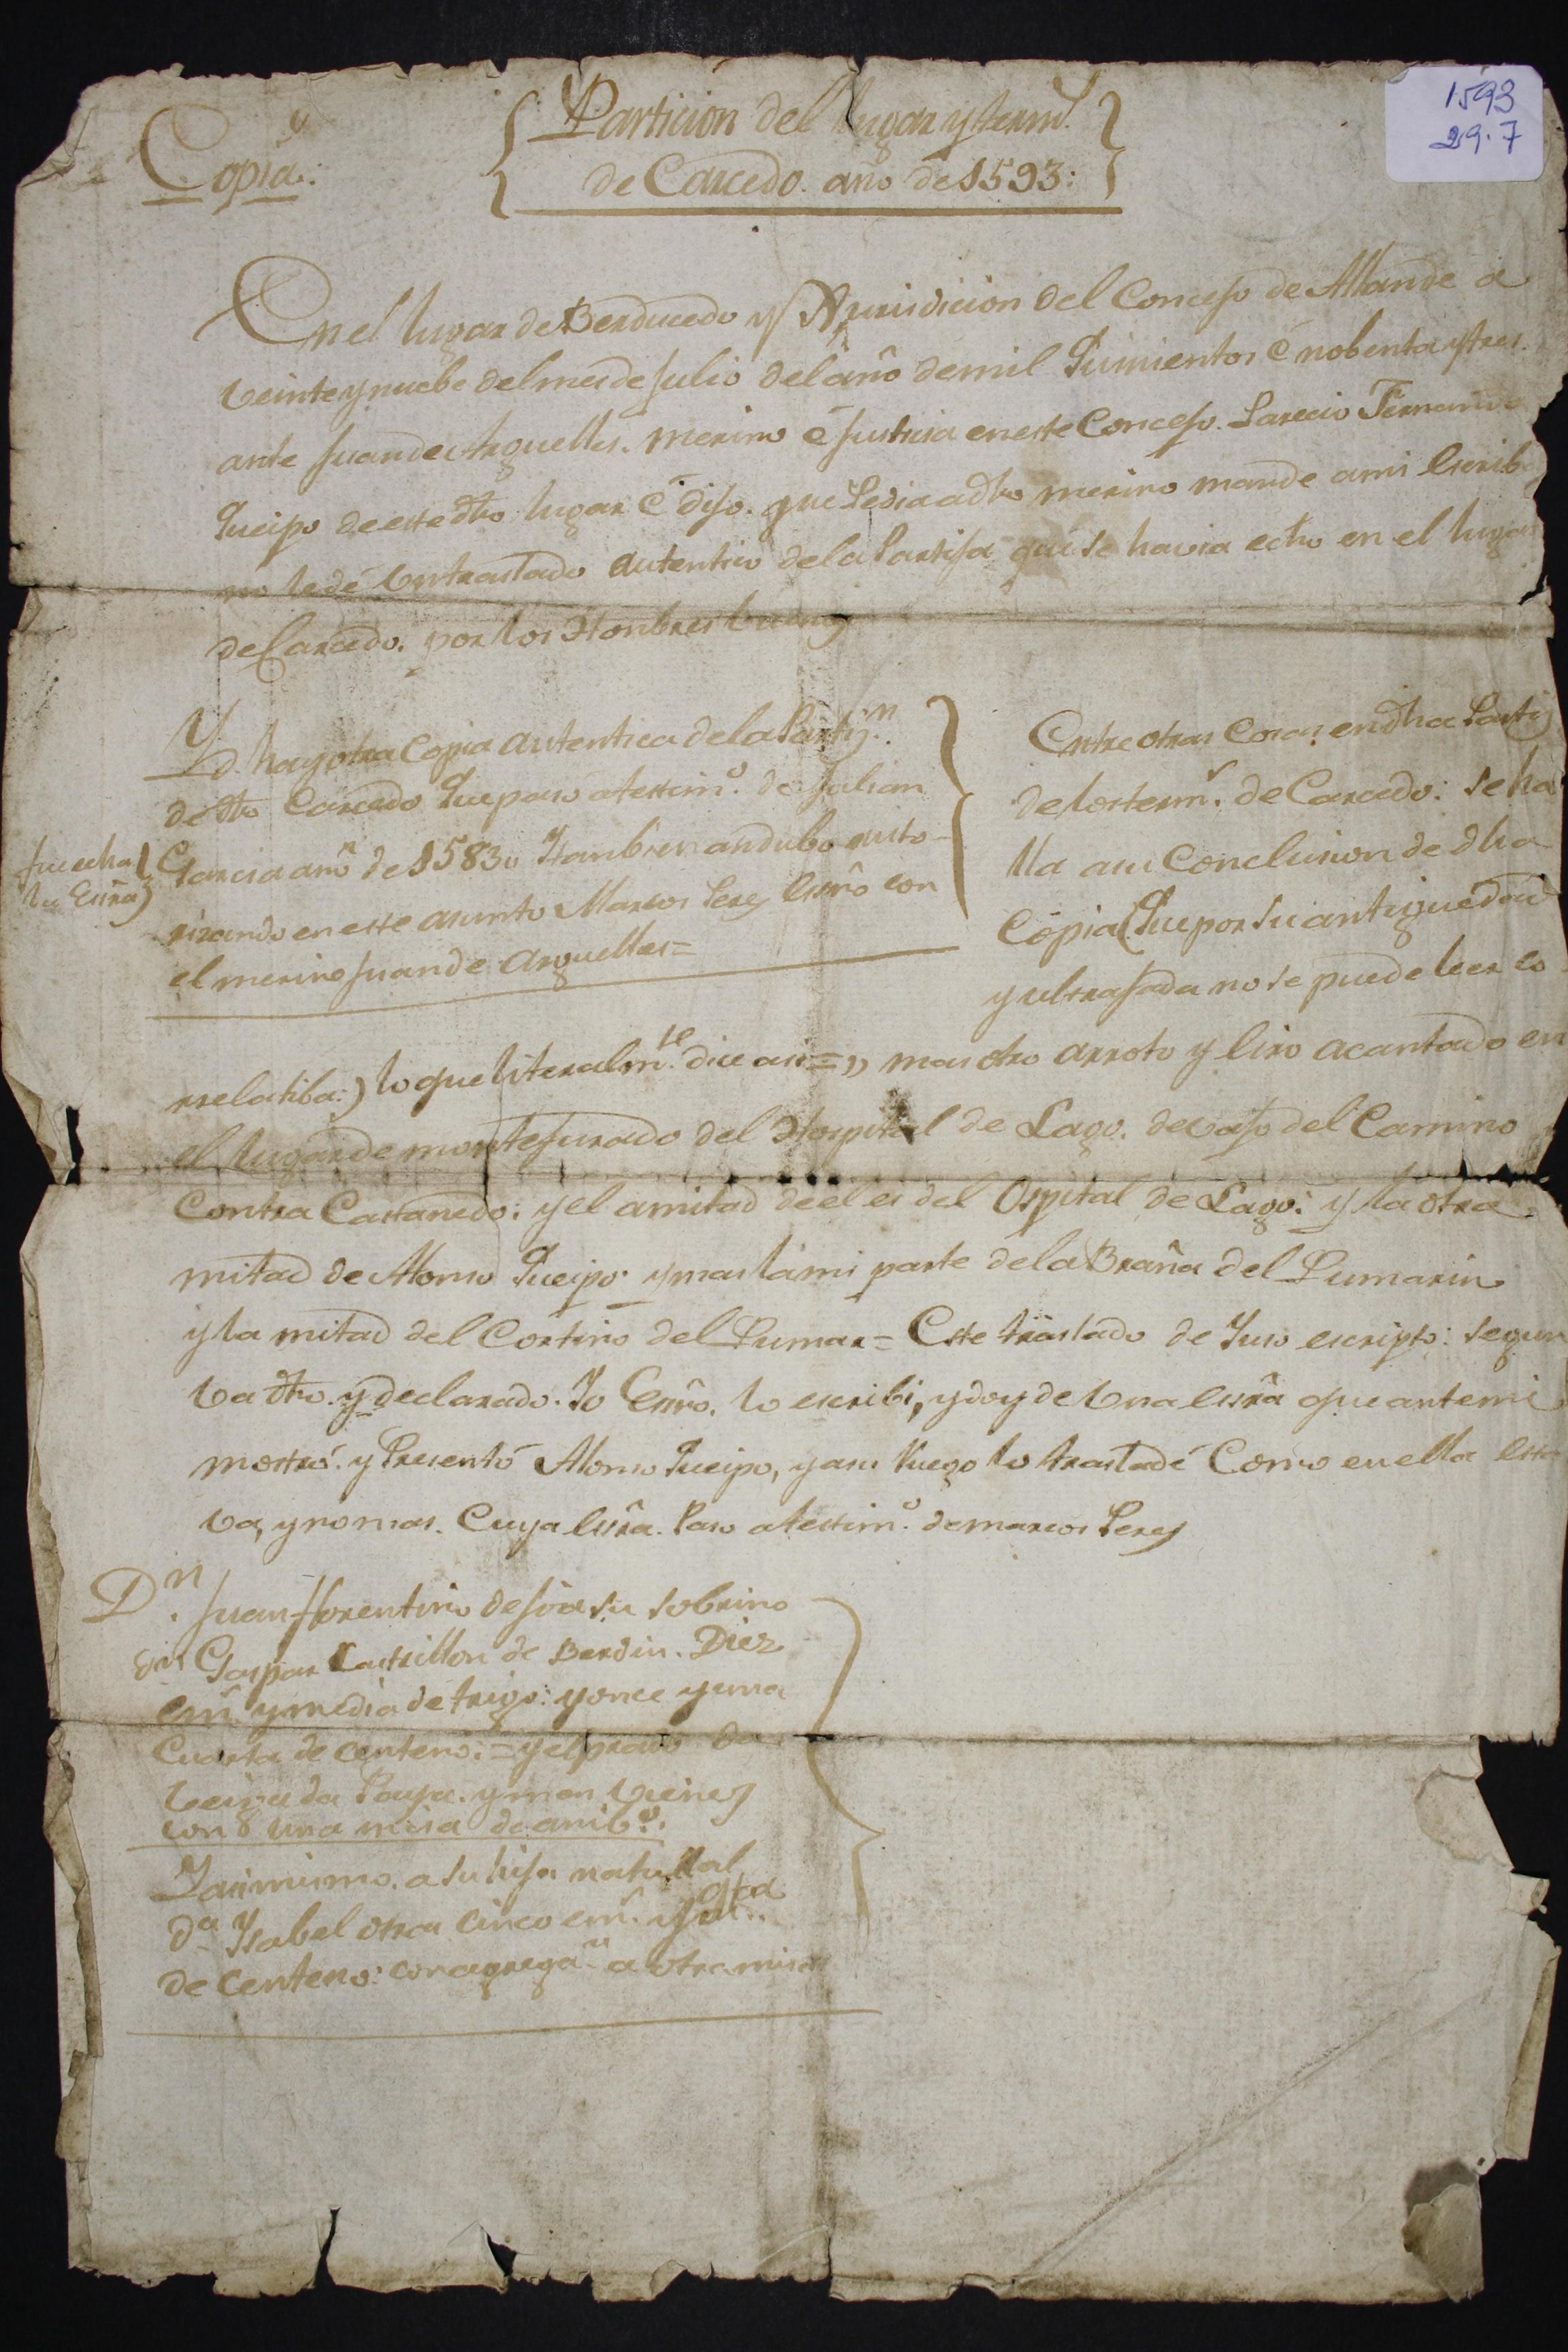 1593
29.7
Copia:
Particion del lugar y term.
de Carcedo. año de 1593:
En el lugar de Berducedo y Jurisdicion del Concejo de Allande à
veinte y nuebe del mes de Julio del año de mil Quinientos é nobenta y tres.
ante Juan de Arguelles. merino é Justicia en este Concejo. Parecio Fernando
Queipo de este dho lugar é dijo. que Pedia a dho merino mande a mi Escriba
no le dé un traslado autentico de la Partija que se havia echo en el lugar
de Carcedo. por los Honbres buenos
Yd. hay otra Copia autentica de la Partij.n
de dho Carcedo Que pasó a testim.o de Julian
Garcia año de 1583. Y tanbien andubo auto-
rizando en este asunto Marcos Perez Essno con
el merino Juan de Arguelles=
fue echa
la Essra
Entre otras Cosas en dha Partij
de los term.s de Carcedo: se ha
lla a su Conclusion de dha
Copia (Que por su antiguedad
y ultrajada no se puede leer lo
relatiba:) lo que literalm.te dice asi=,, mas otro arroto y liro acantado en
el lugar de montefurado del Hospital de Lago. devajo del Camino
Contra Castanedo: y el amitad de el es del Ospital de Lago: y la otra
mitad de Alonso Queipo y mas la mi parte de la Braña del Pumarin
y la mitad del Cortino del Pumar= Este traslado de Yuso escripto: segun
va dho. y declarado. Yo Essno. lo escribi, y doy de una Essra que ante mi
mostró. y Presentó Alonso Queipo, y a su Ruego lo trasladé Como en ella Esta
va, y no mas. Cuya Essra. Paso a testim.o de marcos Perez
D.n Juan florentino dejó a su sobrino
Dn Gaspar Castrillon de Berdin. Diez
em.s y media de trigo: y once y una
Cuarta de centeno:= y el prado da
veiga da Pauja. y mas vienes
con d una misa de anib.o.
Y asimismo. a su hija natural
d.a Ysabel otras cinco em.s
de centeno: con agrega.n a otra misa